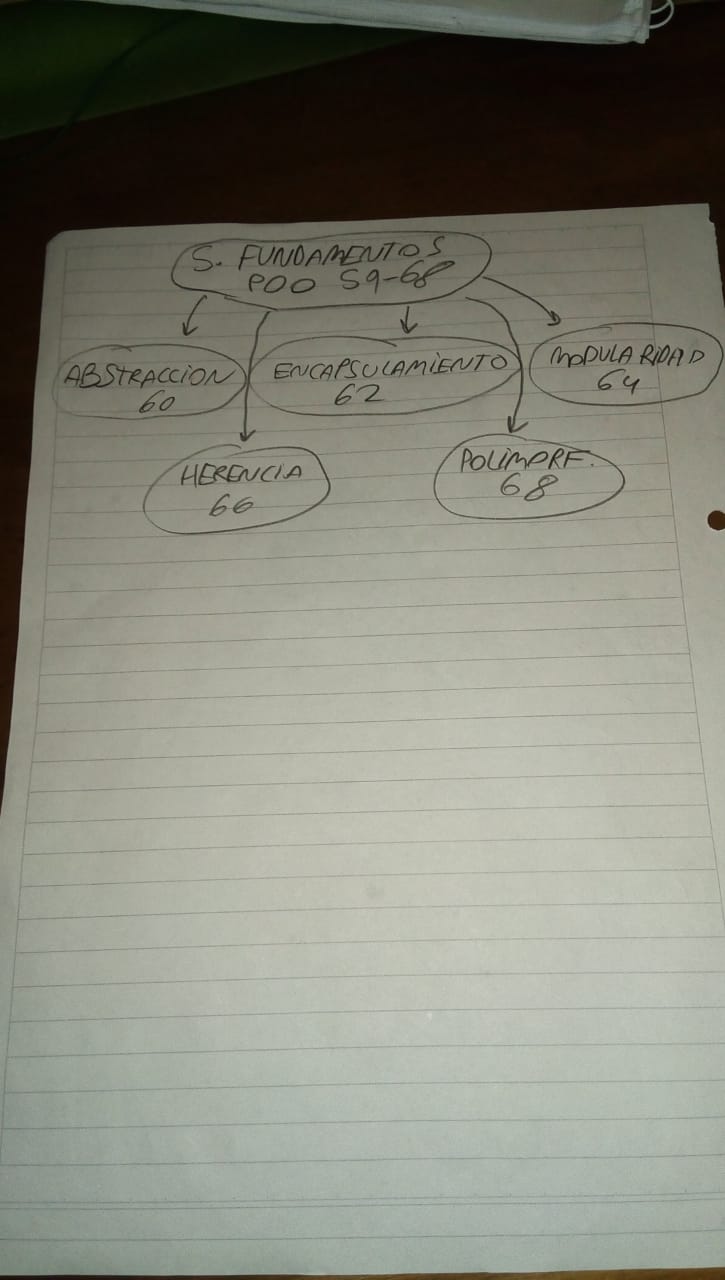 5. FUNDAMENTOS
POO 59-68
ABSTRACCION
60
ENCAPSULAMIENTO
62
MODULARIDAD
64
HERENCIA
66
POLIMORF.
68